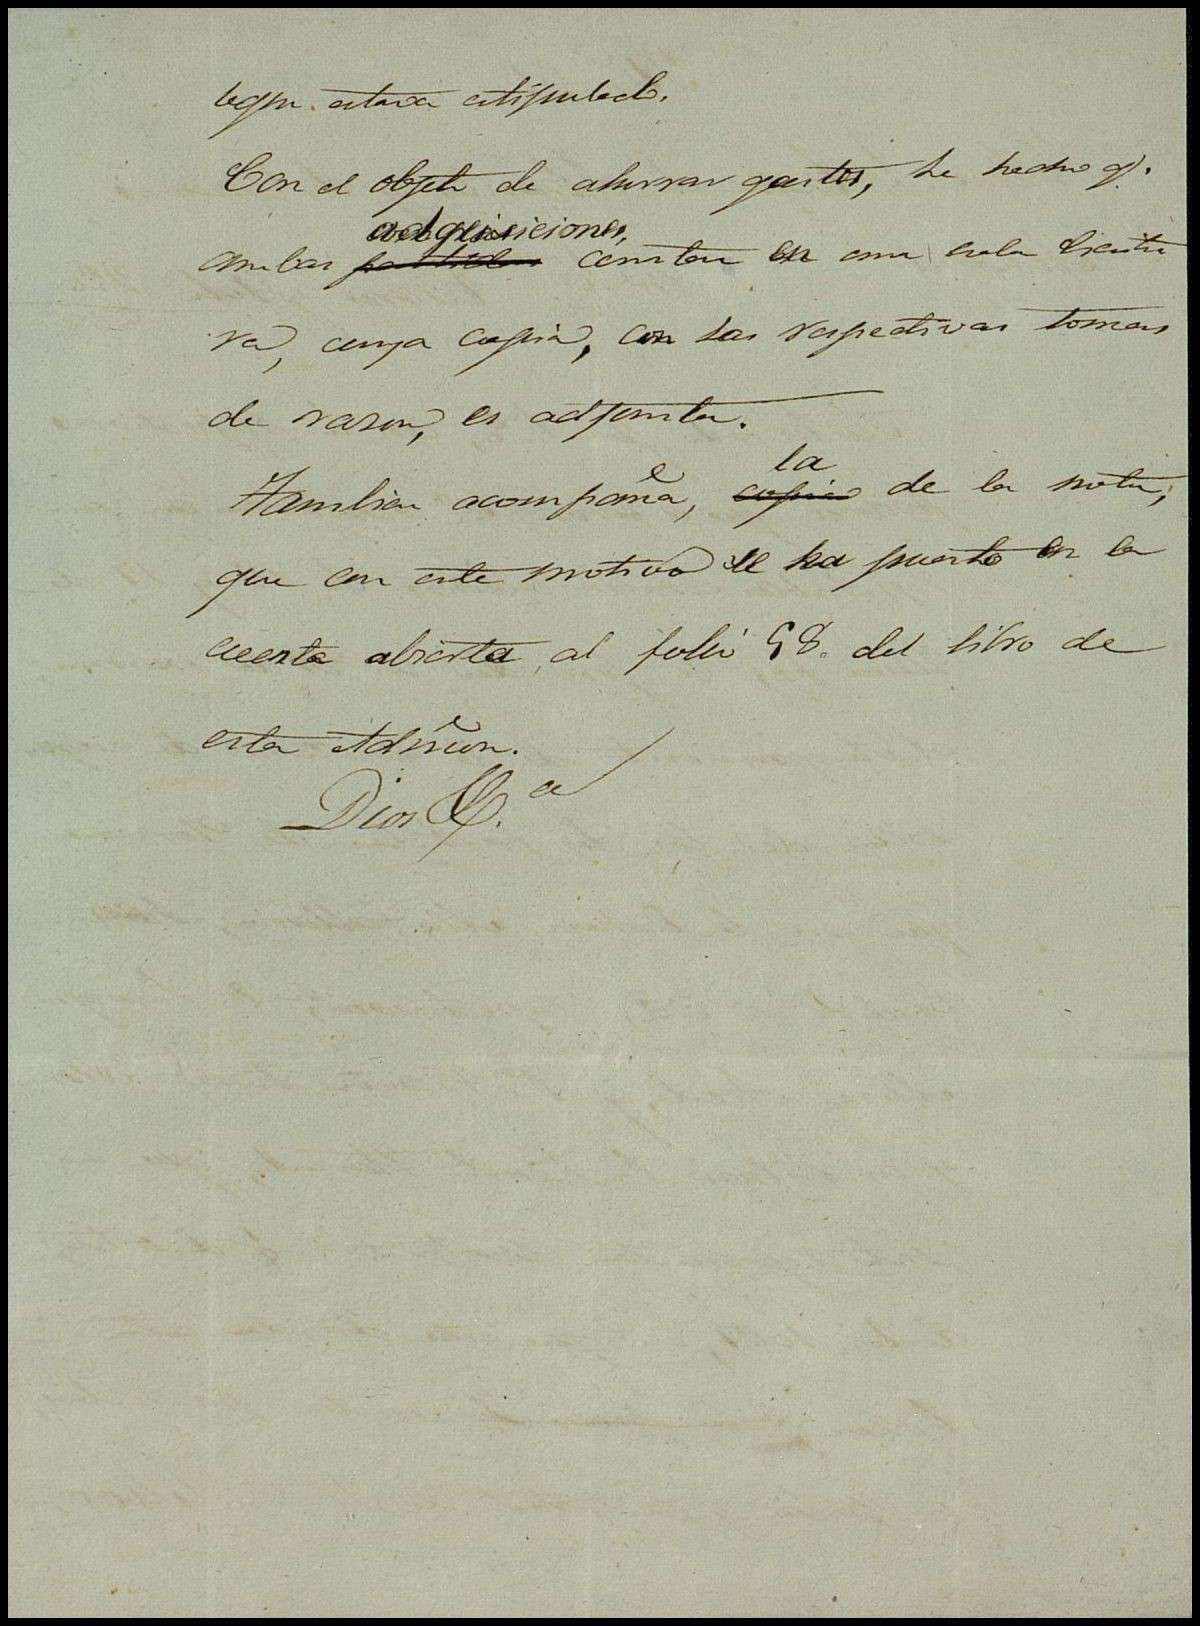 segun estava estipulado.
Con el objeto de ahorrar gastos, he hecho q.
adquisiciones,
ambas partidas consten en una sola Escritu
ra, cuya copia, con las respectivas tomas
de razon, es adjunta.
la
Tambien acompaña, copia de la nota,
que con este motivo se ha puesto en la
cuenta abierta al folio 98. del libro de
esta Admon.
Dios &.a